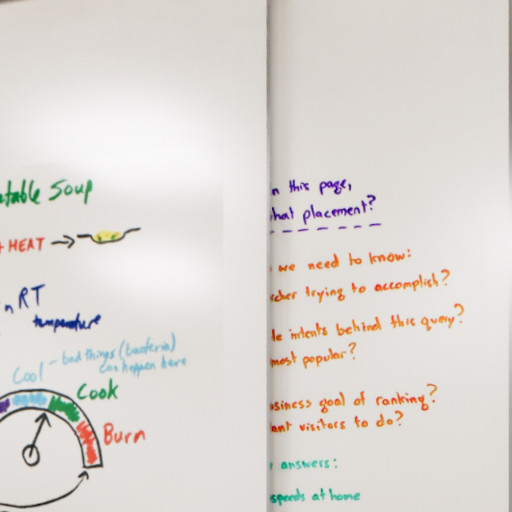 table Soup
+ HEAT →
RT
temperature
Cool - bad things (bacteria)
can happen here.
Cook
Burn
n this page,
hat placement?
we need to know:
cher trying to accomplish?
le intents behind this query?
most popular?
siness goal of ranking?
ant visitors to do?
answers:
speeds at home